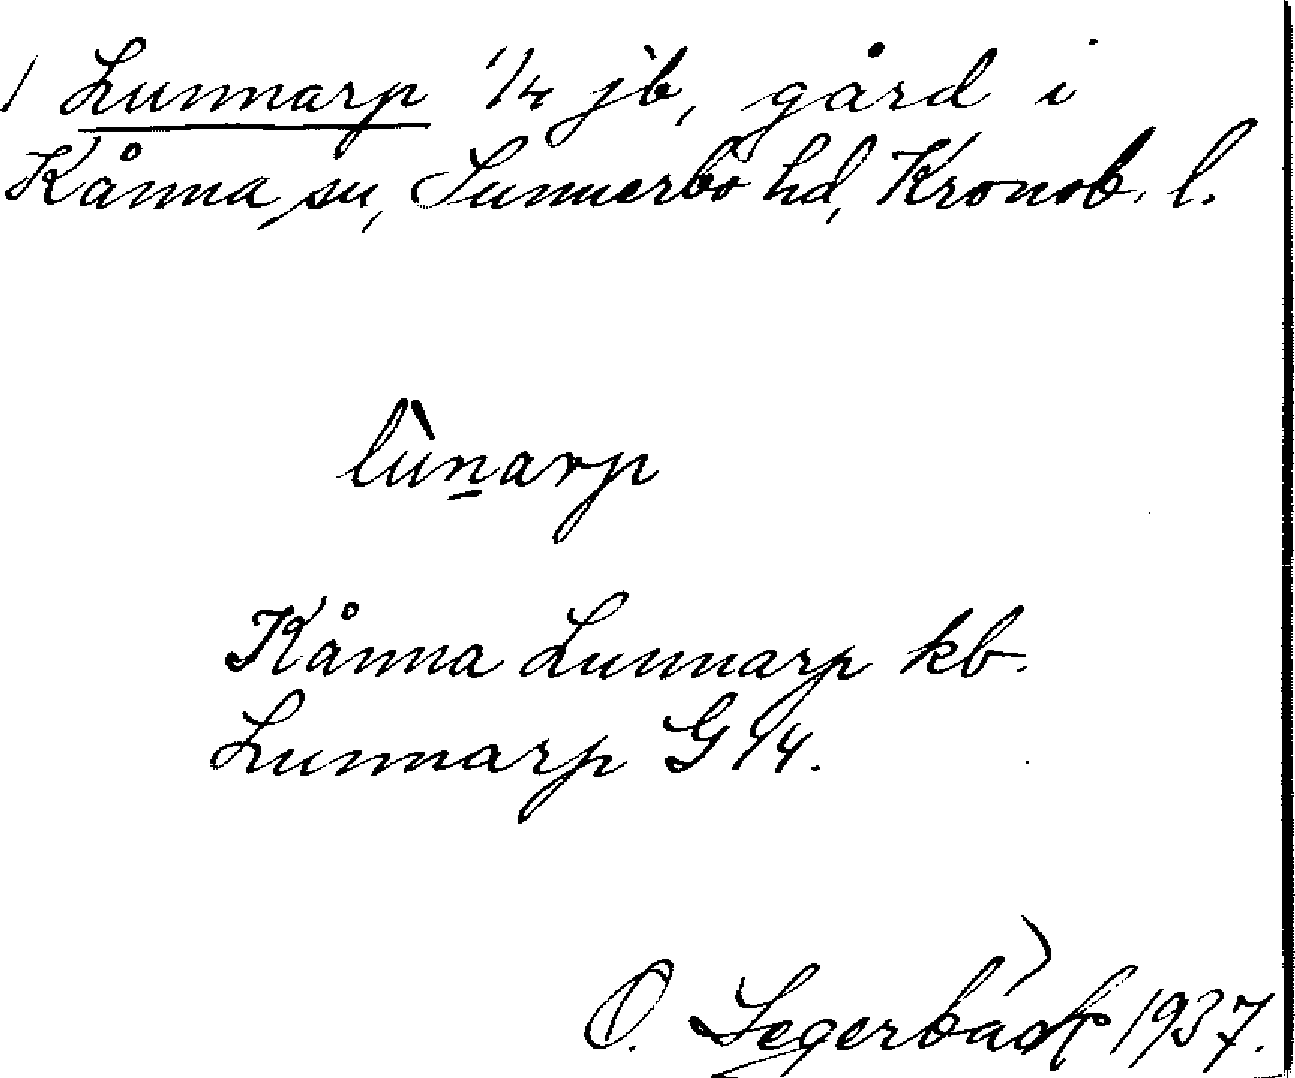 / Lunnarp 1/4 jb, gård i
Kånna sn, Sunnerbo hd, Kronob. l.
lùn̲arp
Kånna Lunnarp kb.
Lunnarp G 14.
O. Segerbäck 1937.